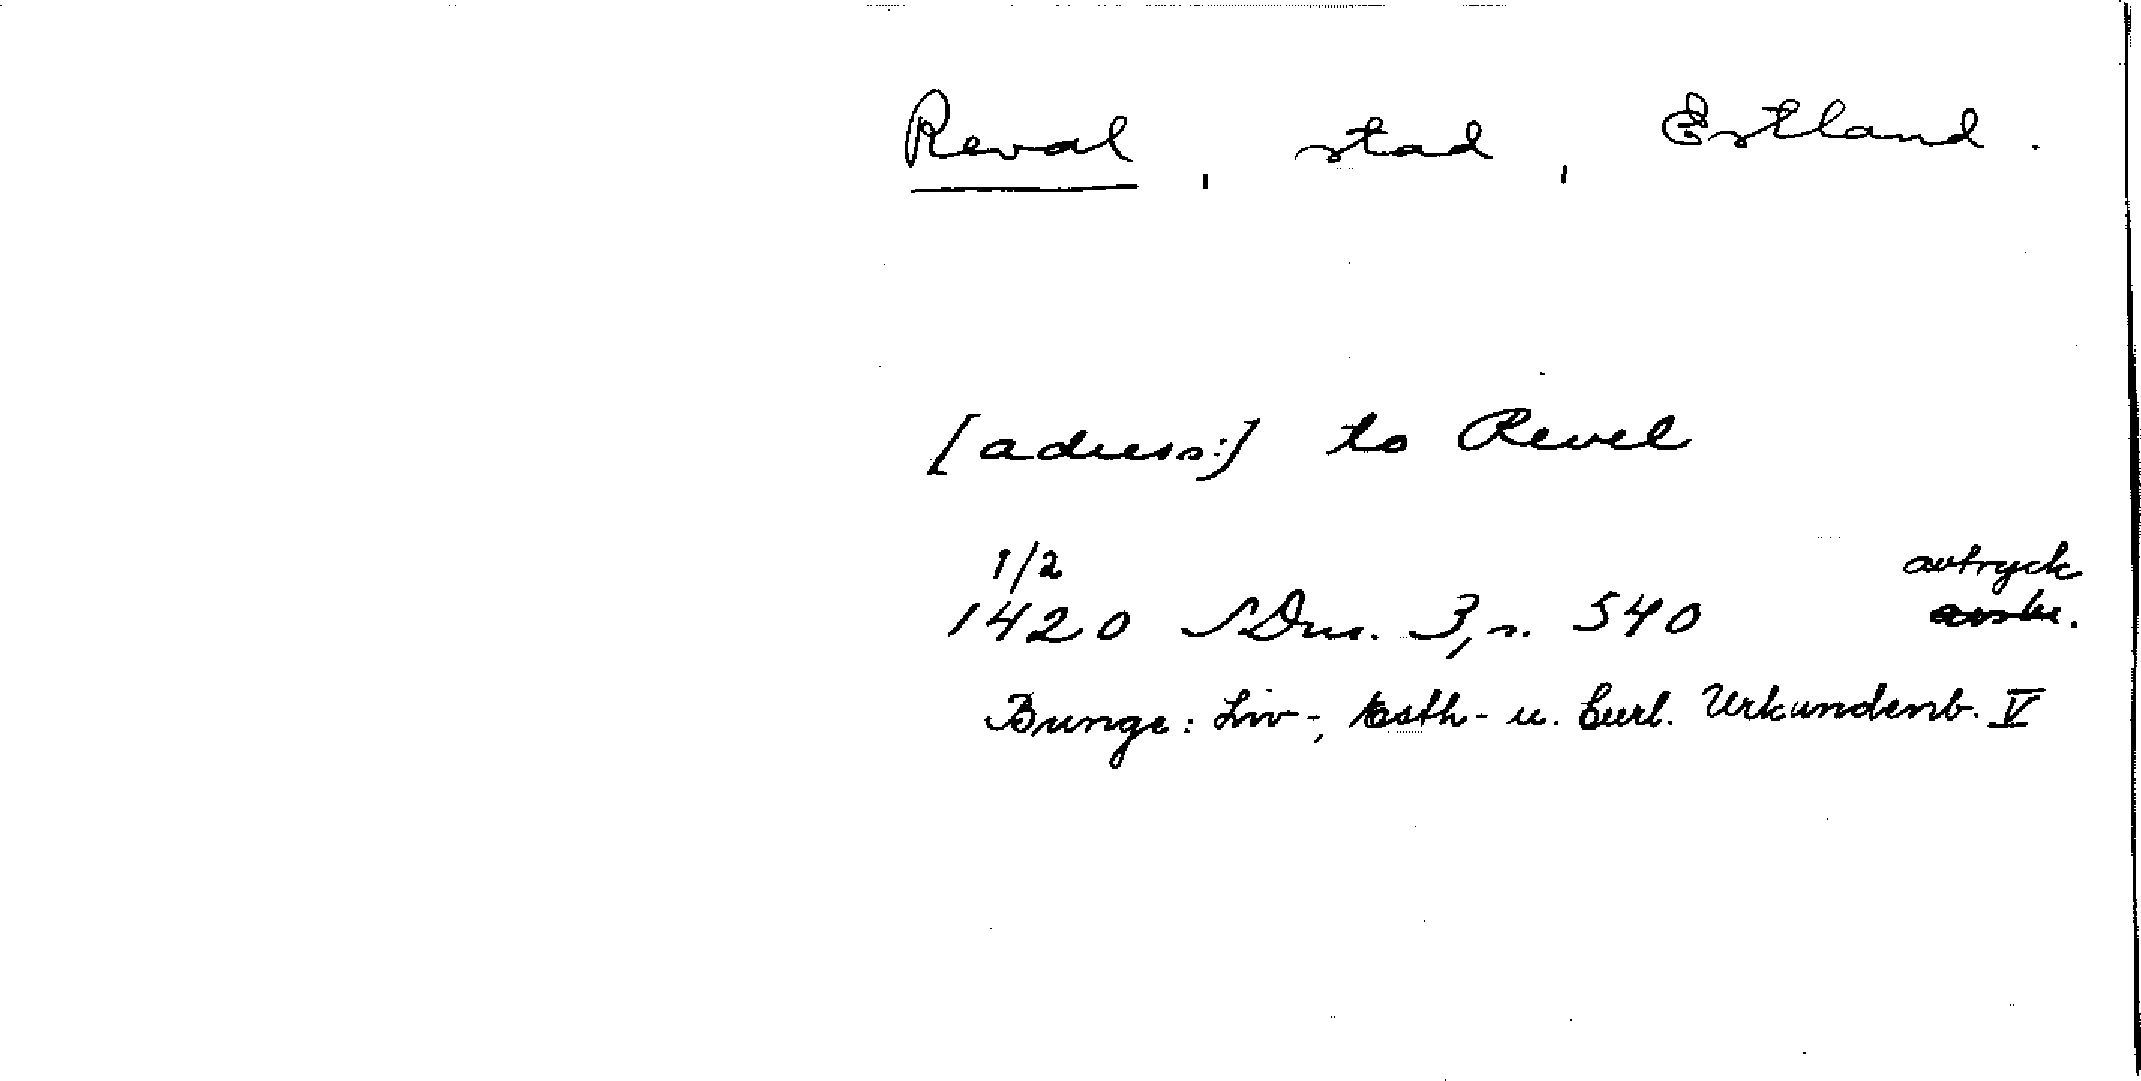 Reval, stad, Estland.
[adress:] to Revel
1/2 avtryck
1420 SDns. 3, s. 540
Bunge: Liv-, Esth- u. Curl. Urkundenb. V